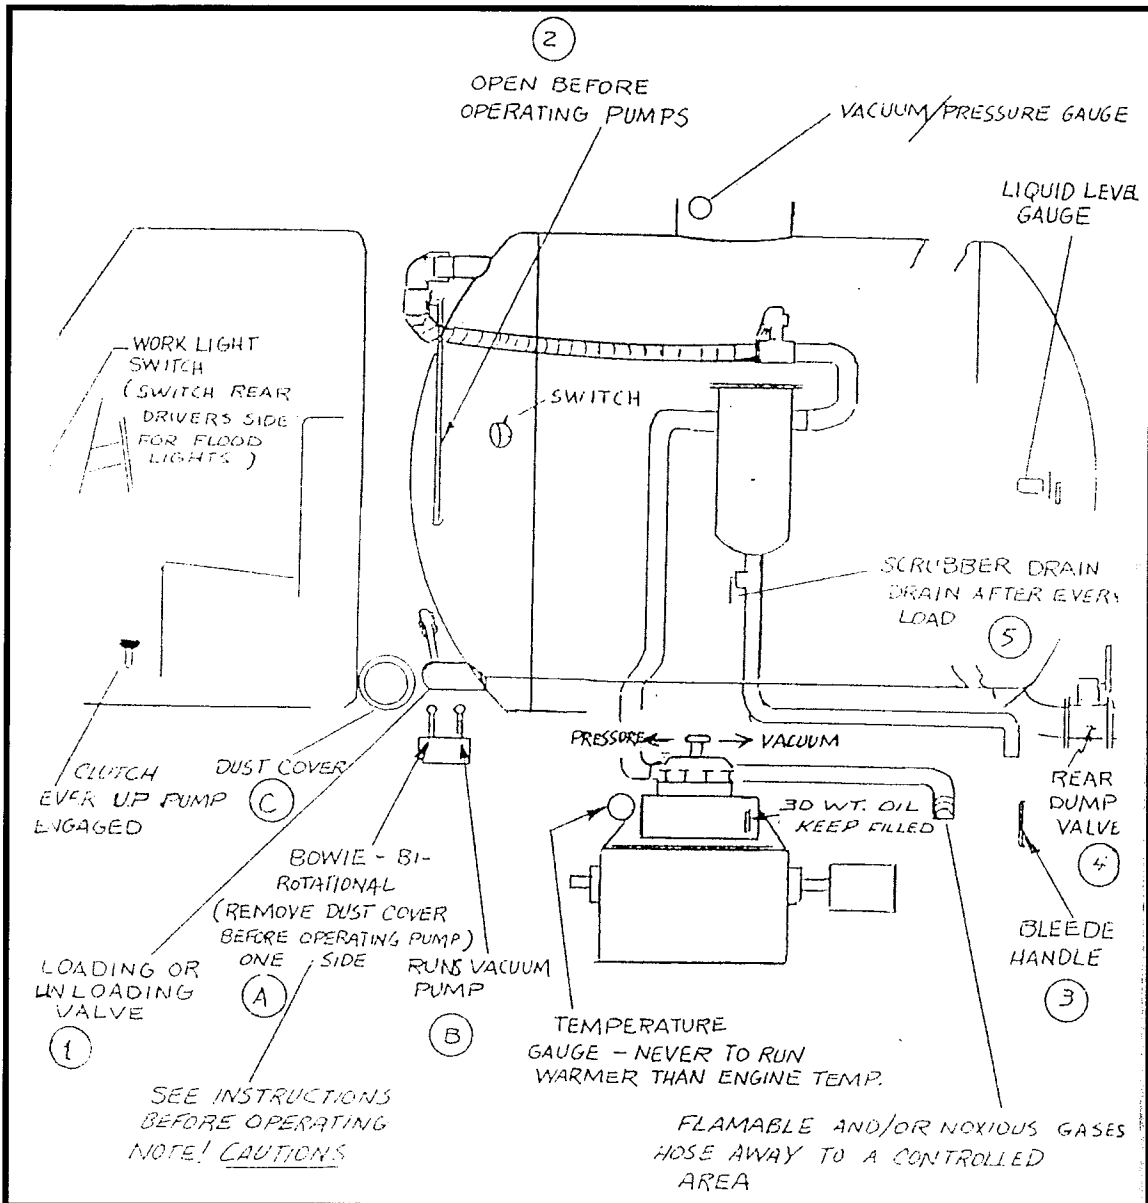 2
OPEN BEFORE
OPERATING PUMPS
VACUUM/PRESSURE GAUGE
LIQUID LEVEL
GAUGE
WORK LIGHT
SWITCH
(SWITCH REAR
DRIVERS SIDE
FOR FLOOD
LIGHTS)
SWITCH
SCRUBBER DRAIN
DRAIN AFTER EVERY
LOAD
5
PRESSURE
VACUUM
CLUTCH
EVER UP PUMP
ENGAGED
DUST COVER
C
30 WT. OIL
KEEP FILLED
REAR
DUMP
VALVE
4
BOWIE - BI-
ROTATIONAL
(REMOVE DUST COVER
BEFORE OPERATING PUMP)
ONE SIDE
A
RUNS VACUUM
PUMP
B
LOADING OR
UNLOADING
VALVE
1
BLEEDE
HANDLE
3
TEMPERATURE
GAUGE - NEVER TO RUN
WARMER THAN ENGINE TEMP.
SEE INSTRUCTIONS
BEFORE OPERATING
NOTE! CAUTIONS
FLAMABLE AND/OR NOXIOUS GASES
HOSE AWAY TO A CONTROLLED
AREA